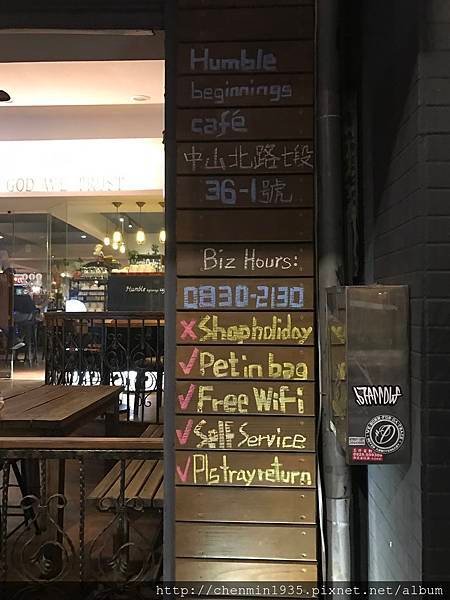 Humble
beginnings
café
中山北路七段
36-1號
Biz Hours:
0830-2130
Shop holiday
Pet in bag
Free WiFi
Self Service
Pls tray return
GOD WE TRUST
Humble
http://chenmin1935.pixnet.net/album